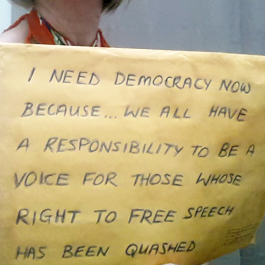 I NEED DEMOCRACY NOW
BECAUSE... WE ALL HAVE
A RESPONSIBILITY TO BE A
VOICE FOR THOSE WHOSE
RIGHT TO FREE SPEECH
HAS BEEN QUASHED